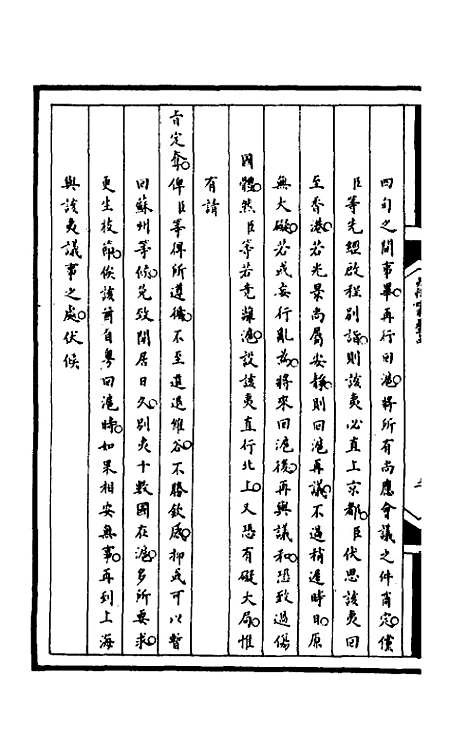 四旬之間事畢再行回滬將所有尚應會議之件商定儻
臣等先經啟程別誦則該夷必直上京都臣伏思該夷回
至香港若光景尚屬安靜則回滬再議不過稍遲時日原
無大礙若或妄行亂為將來回滬後再與議和恐致過傷
國體然臣等若竟離滬設該夷直行北上又恐有礙大局惟
有請
旨定奪俾臣等得所遵循不至進退維谷不勝欽感抑或可以暫
回蘇州等候免致閒居日久別夷十數國在滬多所要求
更生枝節俟該酋自粵回滬時如果相安無事再到上海
與該夷議事之處伏候